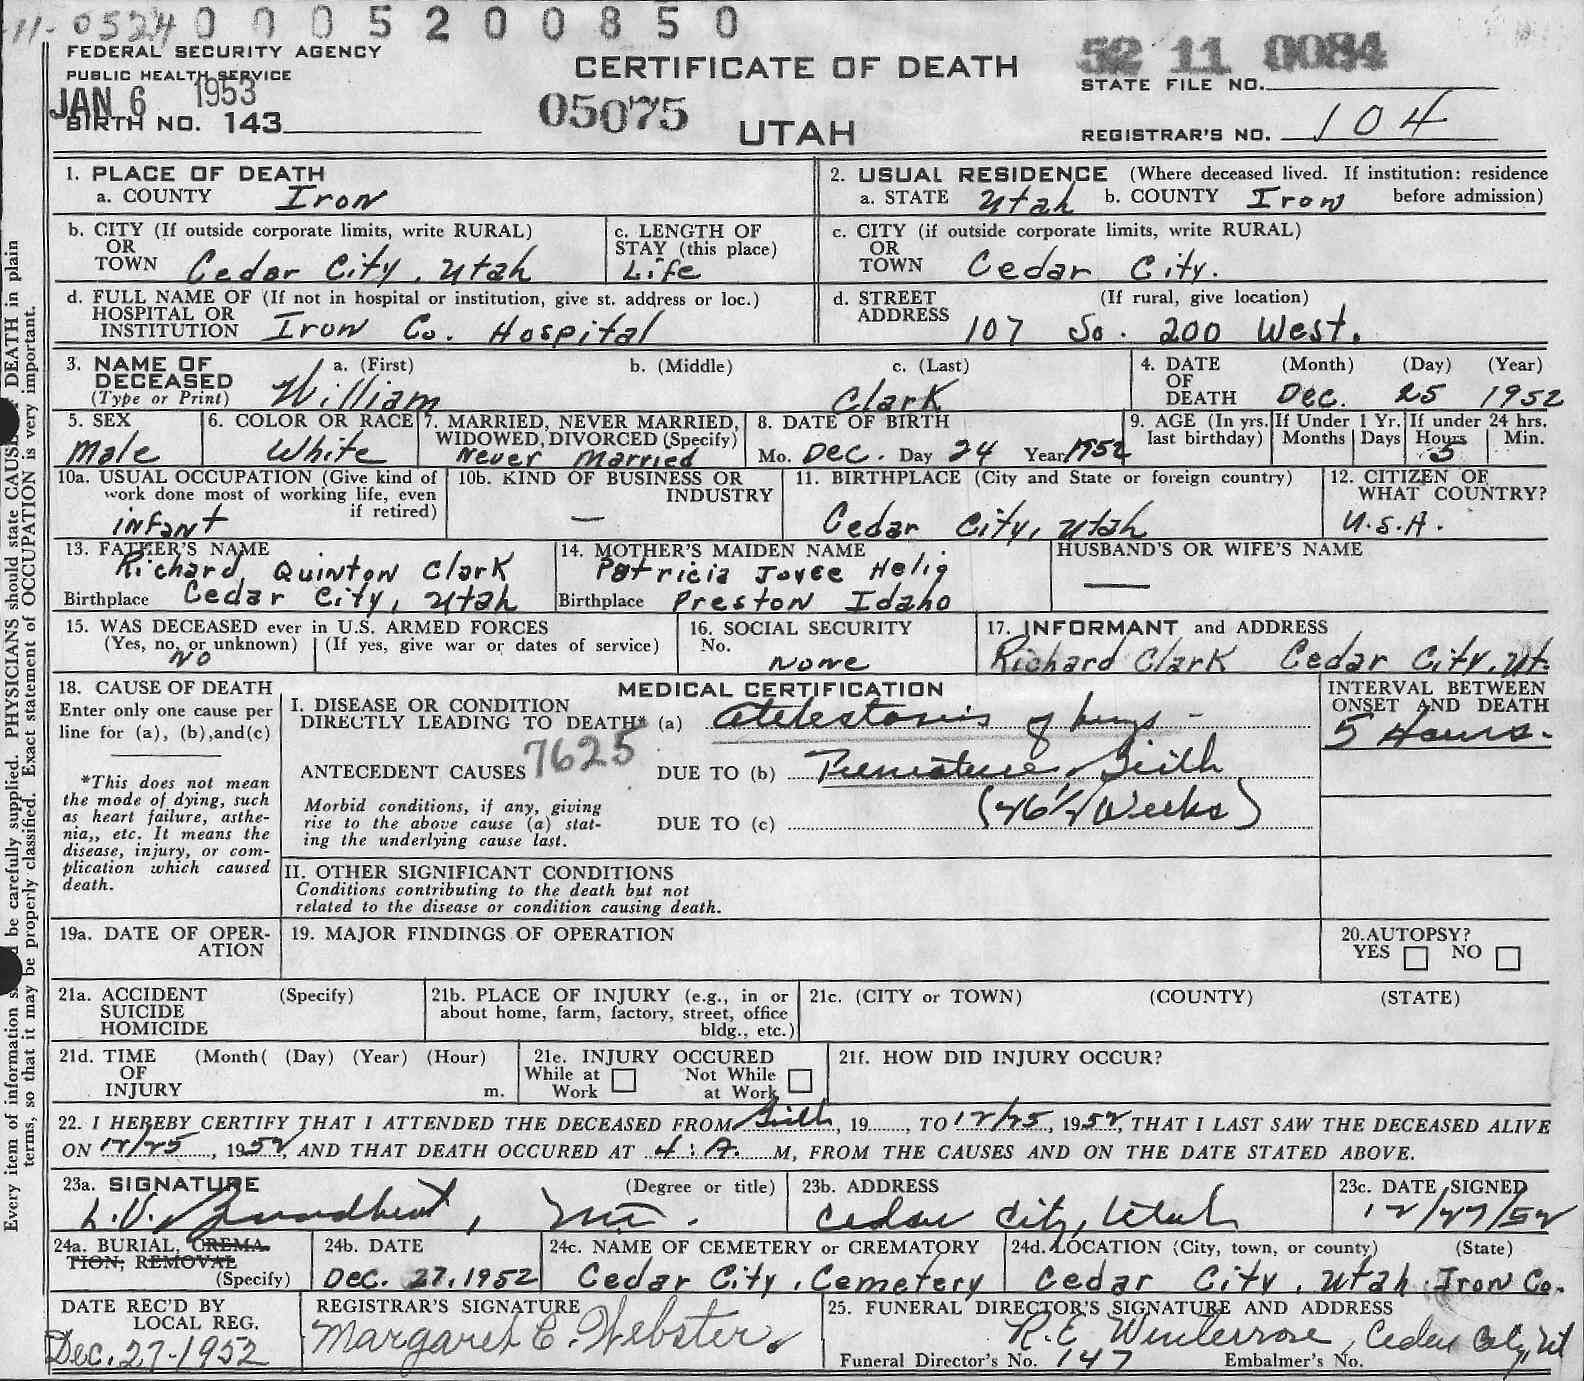 11-0524 0 0 0 5 2 0 0 8 5 0
FEDERAL SECURITY AGENCY
PUBLIC HEALTH SERVICE
JAN 6 1953
BIRTH NO. 143
CERTIFICATE OF DEATH
05075
UTAH
52 11 0084
STATE FILE NO.
REGISTRAR'S NO. 104
1. PLACE OF DEATH
a. COUNTY Iron
2. USUAL RESIDENCE (Where deceased lived. If institution: residence before admission)
a. STATE Utah b. COUNTY Iron
b. CITY (If outside corporate limits, write RURAL)
OR
TOWN Cedar City, Utah
c. LENGTH OF
STAY (this place)
Life
c. CITY (if outside corporate limits, write RURAL)
OR
TOWN Cedar City.
d. FULL NAME OF (If not in hospital or institution, give st. address or loc.)
HOSPITAL OR
INSTITUTION Iron Co. Hospital
d. STREET (If rural, give location)
ADDRESS 107 So. 200 West.
3. NAME OF DECEASED (Type or Print)
a. (First) b. (Middle) c. (Last)
William Clark
4. DATE OF DEATH (Month) (Day) (Year)
Dec. 25 1952
5. SEX
Male
6. COLOR OR RACE
White
7. MARRIED, NEVER MARRIED,
WIDOWED, DIVORCED (Specify)
Never Married
8. DATE OF BIRTH
Mo. Dec. Day 24 Year 1952
9. AGE (In yrs. last birthday)
If Under 1 Yr. Months Days
If under 24 hrs. Hours Min.
5
10a. USUAL OCCUPATION (Give kind of
work done most of working life, even
if retired)
infant
10b. KIND OF BUSINESS OR
INDUSTRY
—
11. BIRTHPLACE (City and State or foreign country)
Cedar City, Utah
12. CITIZEN OF
WHAT COUNTRY?
U.S.A.
13. FATHER'S NAME
Richard Quinton Clark
Birthplace Cedar City, Utah
14. MOTHER'S MAIDEN NAME
Patricia Joyce Helig
Birthplace Preston Idaho
HUSBAND'S OR WIFE'S NAME
—
15. WAS DECEASED ever in U.S. ARMED FORCES
(Yes, no, or unknown) (If yes, give war or dates of service)
No
16. SOCIAL SECURITY
No.
none
17. INFORMANT and ADDRESS
Richard Clark Cedar City, Ut.
18. CAUSE OF DEATH
Enter only one cause per
line for (a), (b),and(c)
*This does not mean
the mode of dying, such
as heart failure, asthe-
nia,, etc. It means the
disease, injury, or com-
plication which caused
death.
MEDICAL CERTIFICATION
I. DISEASE OR CONDITION
DIRECTLY LEADING TO DEATH* (a) Atelectasis of lungs -
7625
ANTECEDENT CAUSES DUE TO (b) Premature Birth
Morbid conditions, if any, giving
rise to the above cause (a) stat-
ing the underlying cause last.
DUE TO (c) (26½ Weeks)
INTERVAL BETWEEN
ONSET AND DEATH
5 Hours.
II. OTHER SIGNIFICANT CONDITIONS
Conditions contributing to the death but not
related to the disease or condition causing death.
19a. DATE OF OPER-
ATION
19. MAJOR FINDINGS OF OPERATION
20.AUTOPSY?
YES NO
21a. ACCIDENT (Specify)
SUICIDE
HOMICIDE
21b. PLACE OF INJURY (e.g., in or
about home, farm, factory, street, office
bldg., etc.)
21c. (CITY or TOWN) (COUNTY) (STATE)
21d. TIME (Month( (Day) (Year) (Hour)
OF
INJURY m.
21e. INJURY OCCURED
While at Work Not While at Work
21f. HOW DID INJURY OCCUR?
22. I HEREBY CERTIFY THAT I ATTENDED THE DECEASED FROM Birth, 19......, TO 12/25, 1952, THAT I LAST SAW THE DECEASED ALIVE
ON 12/25, 1952, AND THAT DEATH OCCURED AT 4:A. M, FROM THE CAUSES AND ON THE DATE STATED ABOVE.
23a. SIGNATURE (Degree or title)
L.V. Broadbent, M.D.
23b. ADDRESS
Cedar City, Utah
23c. DATE SIGNED
12/27/52
24a. BURIAL, CREMA-
TION, REMOVAL
(Specify)
24b. DATE
Dec. 27, 1952
24c. NAME OF CEMETERY or CREMATORY
Cedar City, Cemetery
24d. LOCATION (City, town, or county) (State)
Cedar City, Utah Iron Co.
DATE REC'D BY
LOCAL REG.
Dec. 27-1952
REGISTRAR'S SIGNATURE
Margaret E. Webster.
25. FUNERAL DIRECTOR'S SIGNATURE AND ADDRESS
R.E Winterrose, Cedar City, Ut
Funeral Director's No. 147 Embalmer's No.
Every item of information be carefully supplied. PHYSICIANS should state CAUSE DEATH in plain
terms, so that it may be properly classified. Exact statement of OCCUPATION is very important.